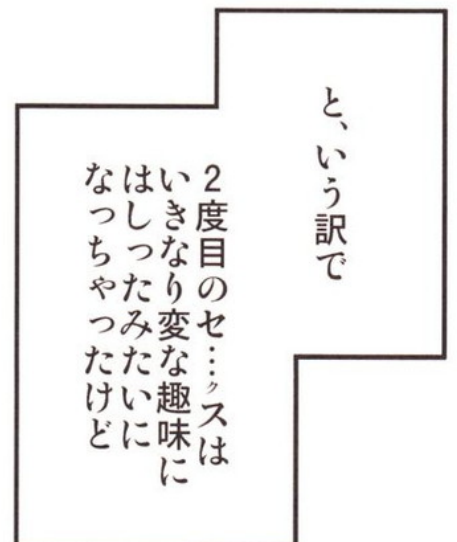 と、いう訳で
2度目のセ…クスは
いきなり変な趣味に
はしったみたいに
なっちゃったけど